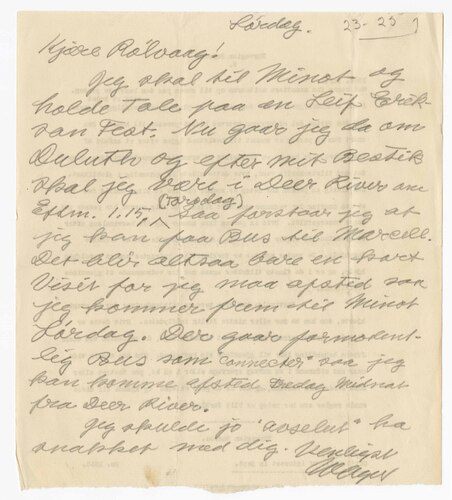 Lørdag.
23-25
Kjære Rølvaag!
Jeg skal til Minot og
holde Tale paa en Leif Erik-
son Fest. Nu gaar jeg da om
Duluth og efter mit Bestik
skal jeg være i Deer River om
Eftm. 1.15, (Torsdag) saa forstaar jeg at
jeg kan faa Bus til Marcell.
Det blir altsaa bare en kort
Visit for jeg maa afsted saa
jeg kommer frem til Minot
Lørdag. Der gaar formodent-
lig Bus som "connecter" saa jeg
kan komme afsted Fredag Midnat
fra Deer River.
Jeg skulde jo "avselut" ha
snakket med dig. Venligst
Wager